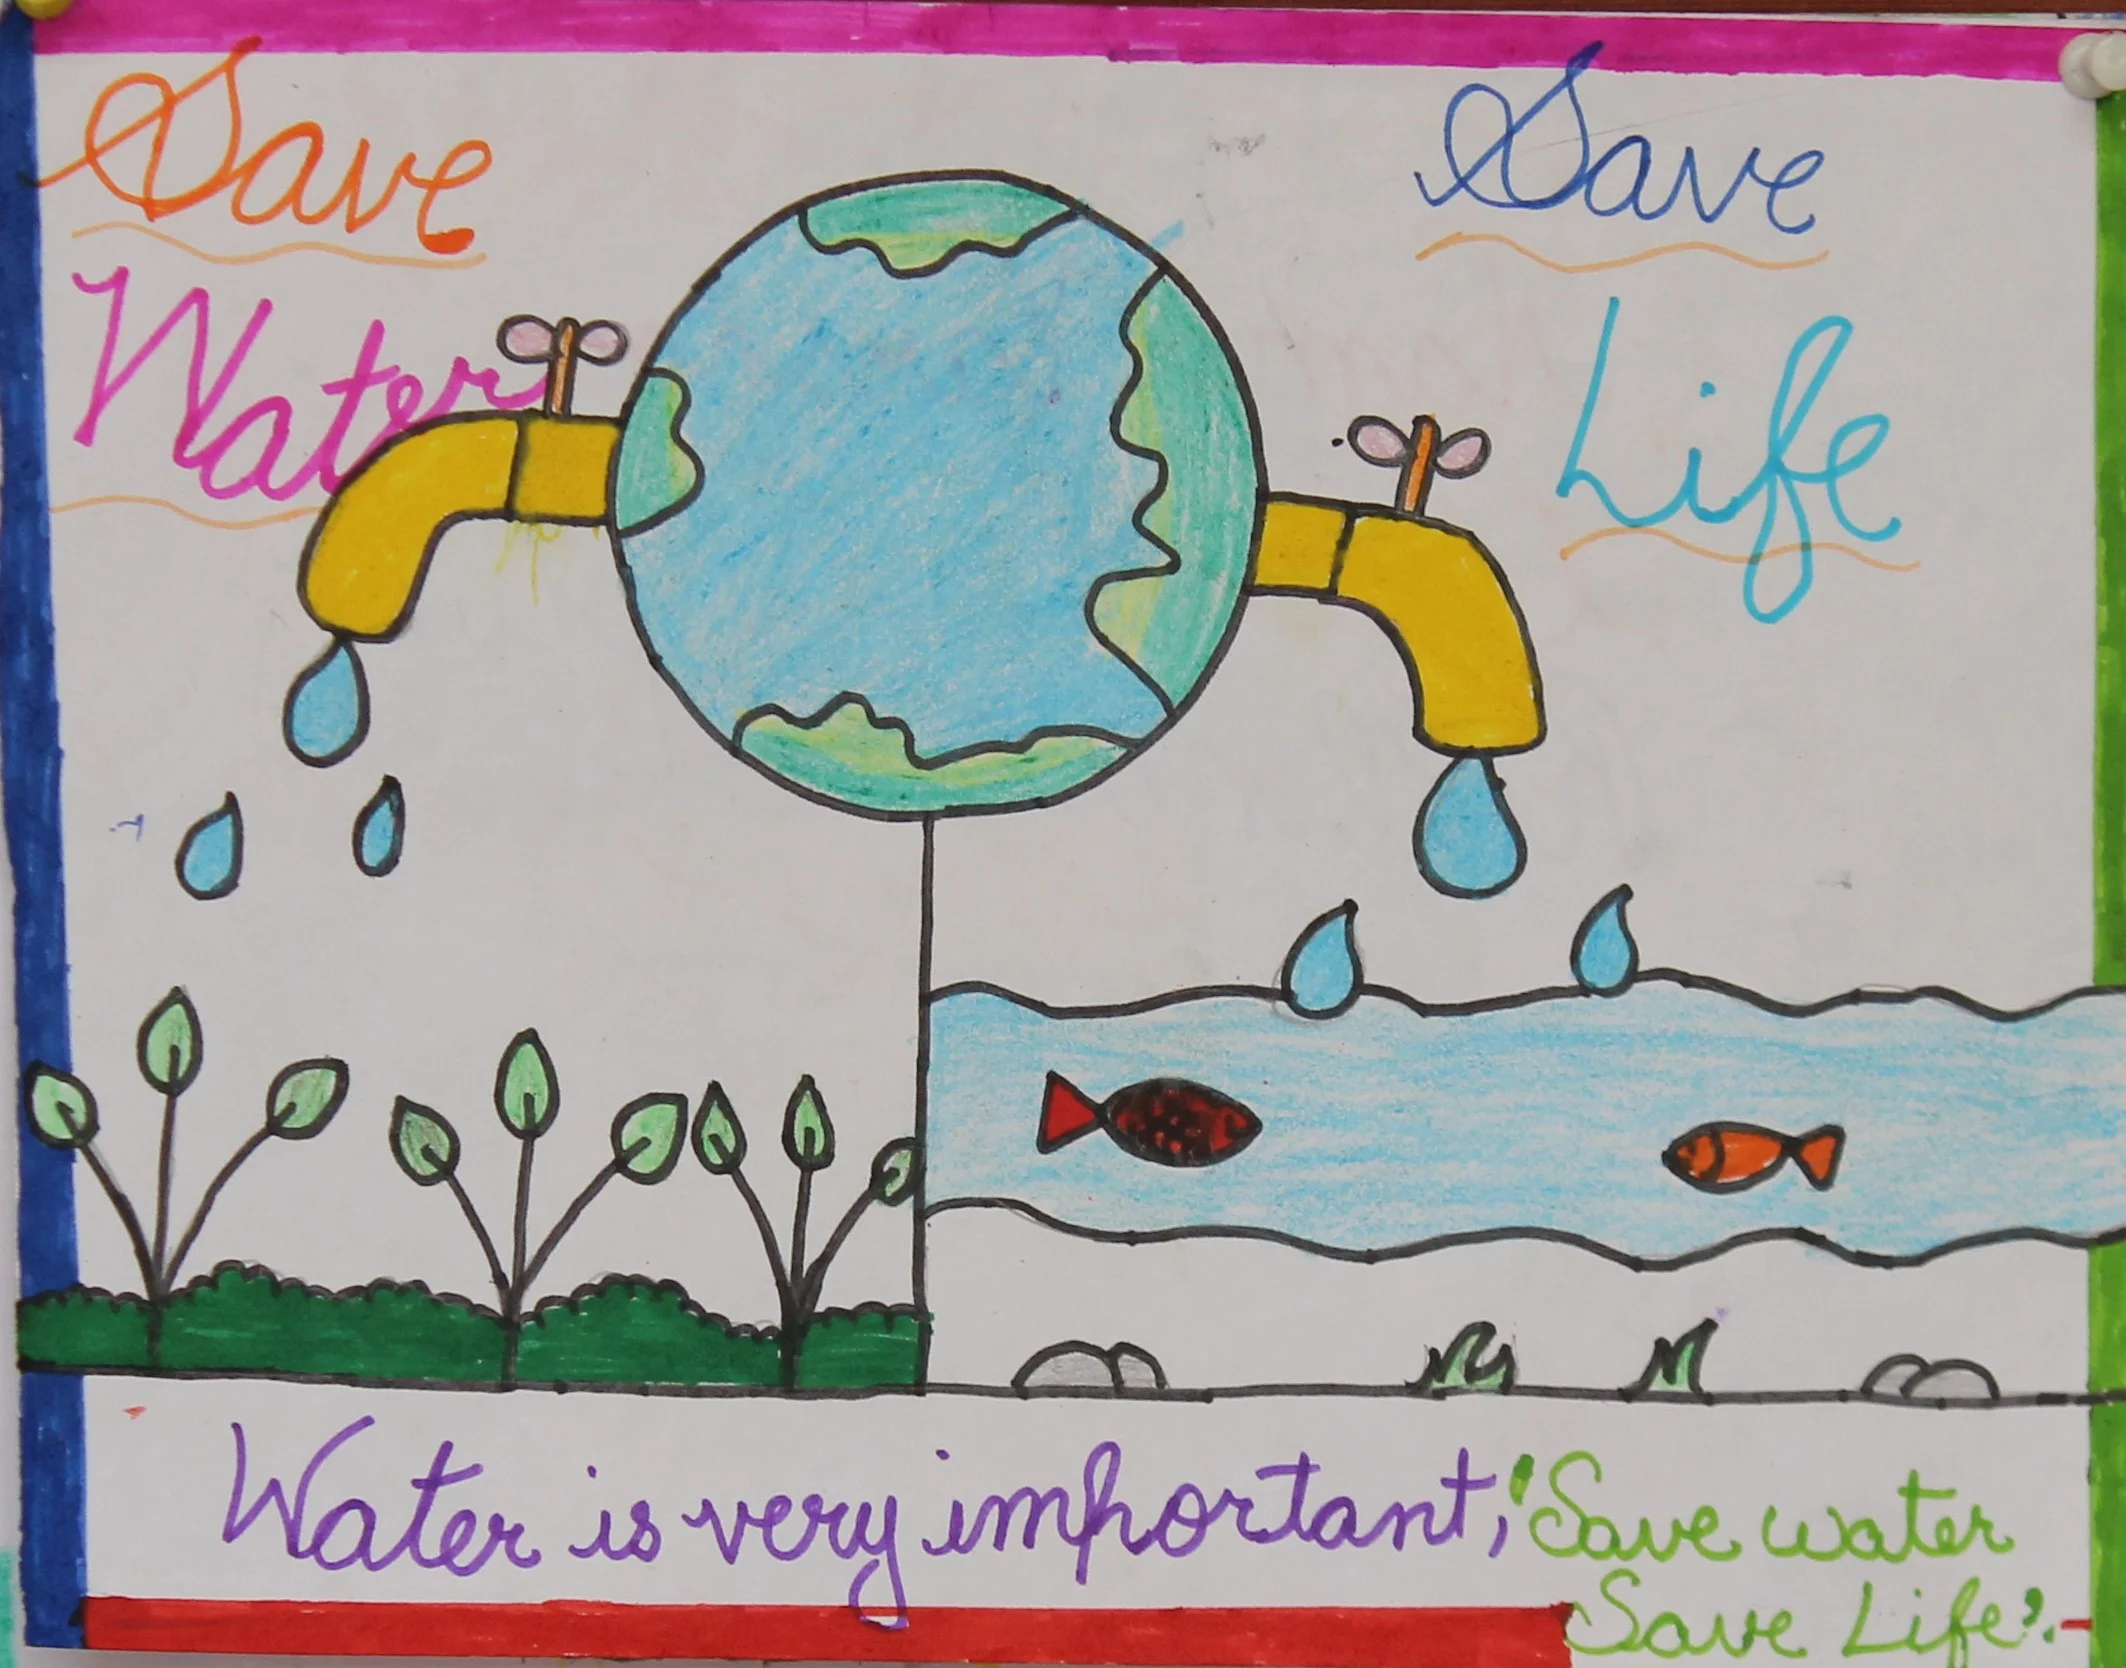 Save
Water
Save
Life
Water is very important, 'Save water
Save Life'.